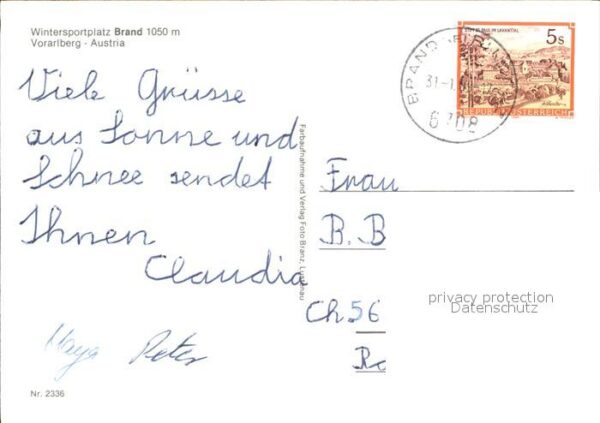 Wintersportplatz Brand 1050 m
Vorarlberg - Austria
Viele Grüsse
aus Sonne und
Schnee sendet
Ihnen
Claudia
Maya Peter
Nr. 2336
Farbaufnahme und Verlag Foto Branz,
5s
REPUBLIK ÖSTERREICH
BRAND
6708
Frau
B. B
Ch 56
privacy protection
Datenschutz